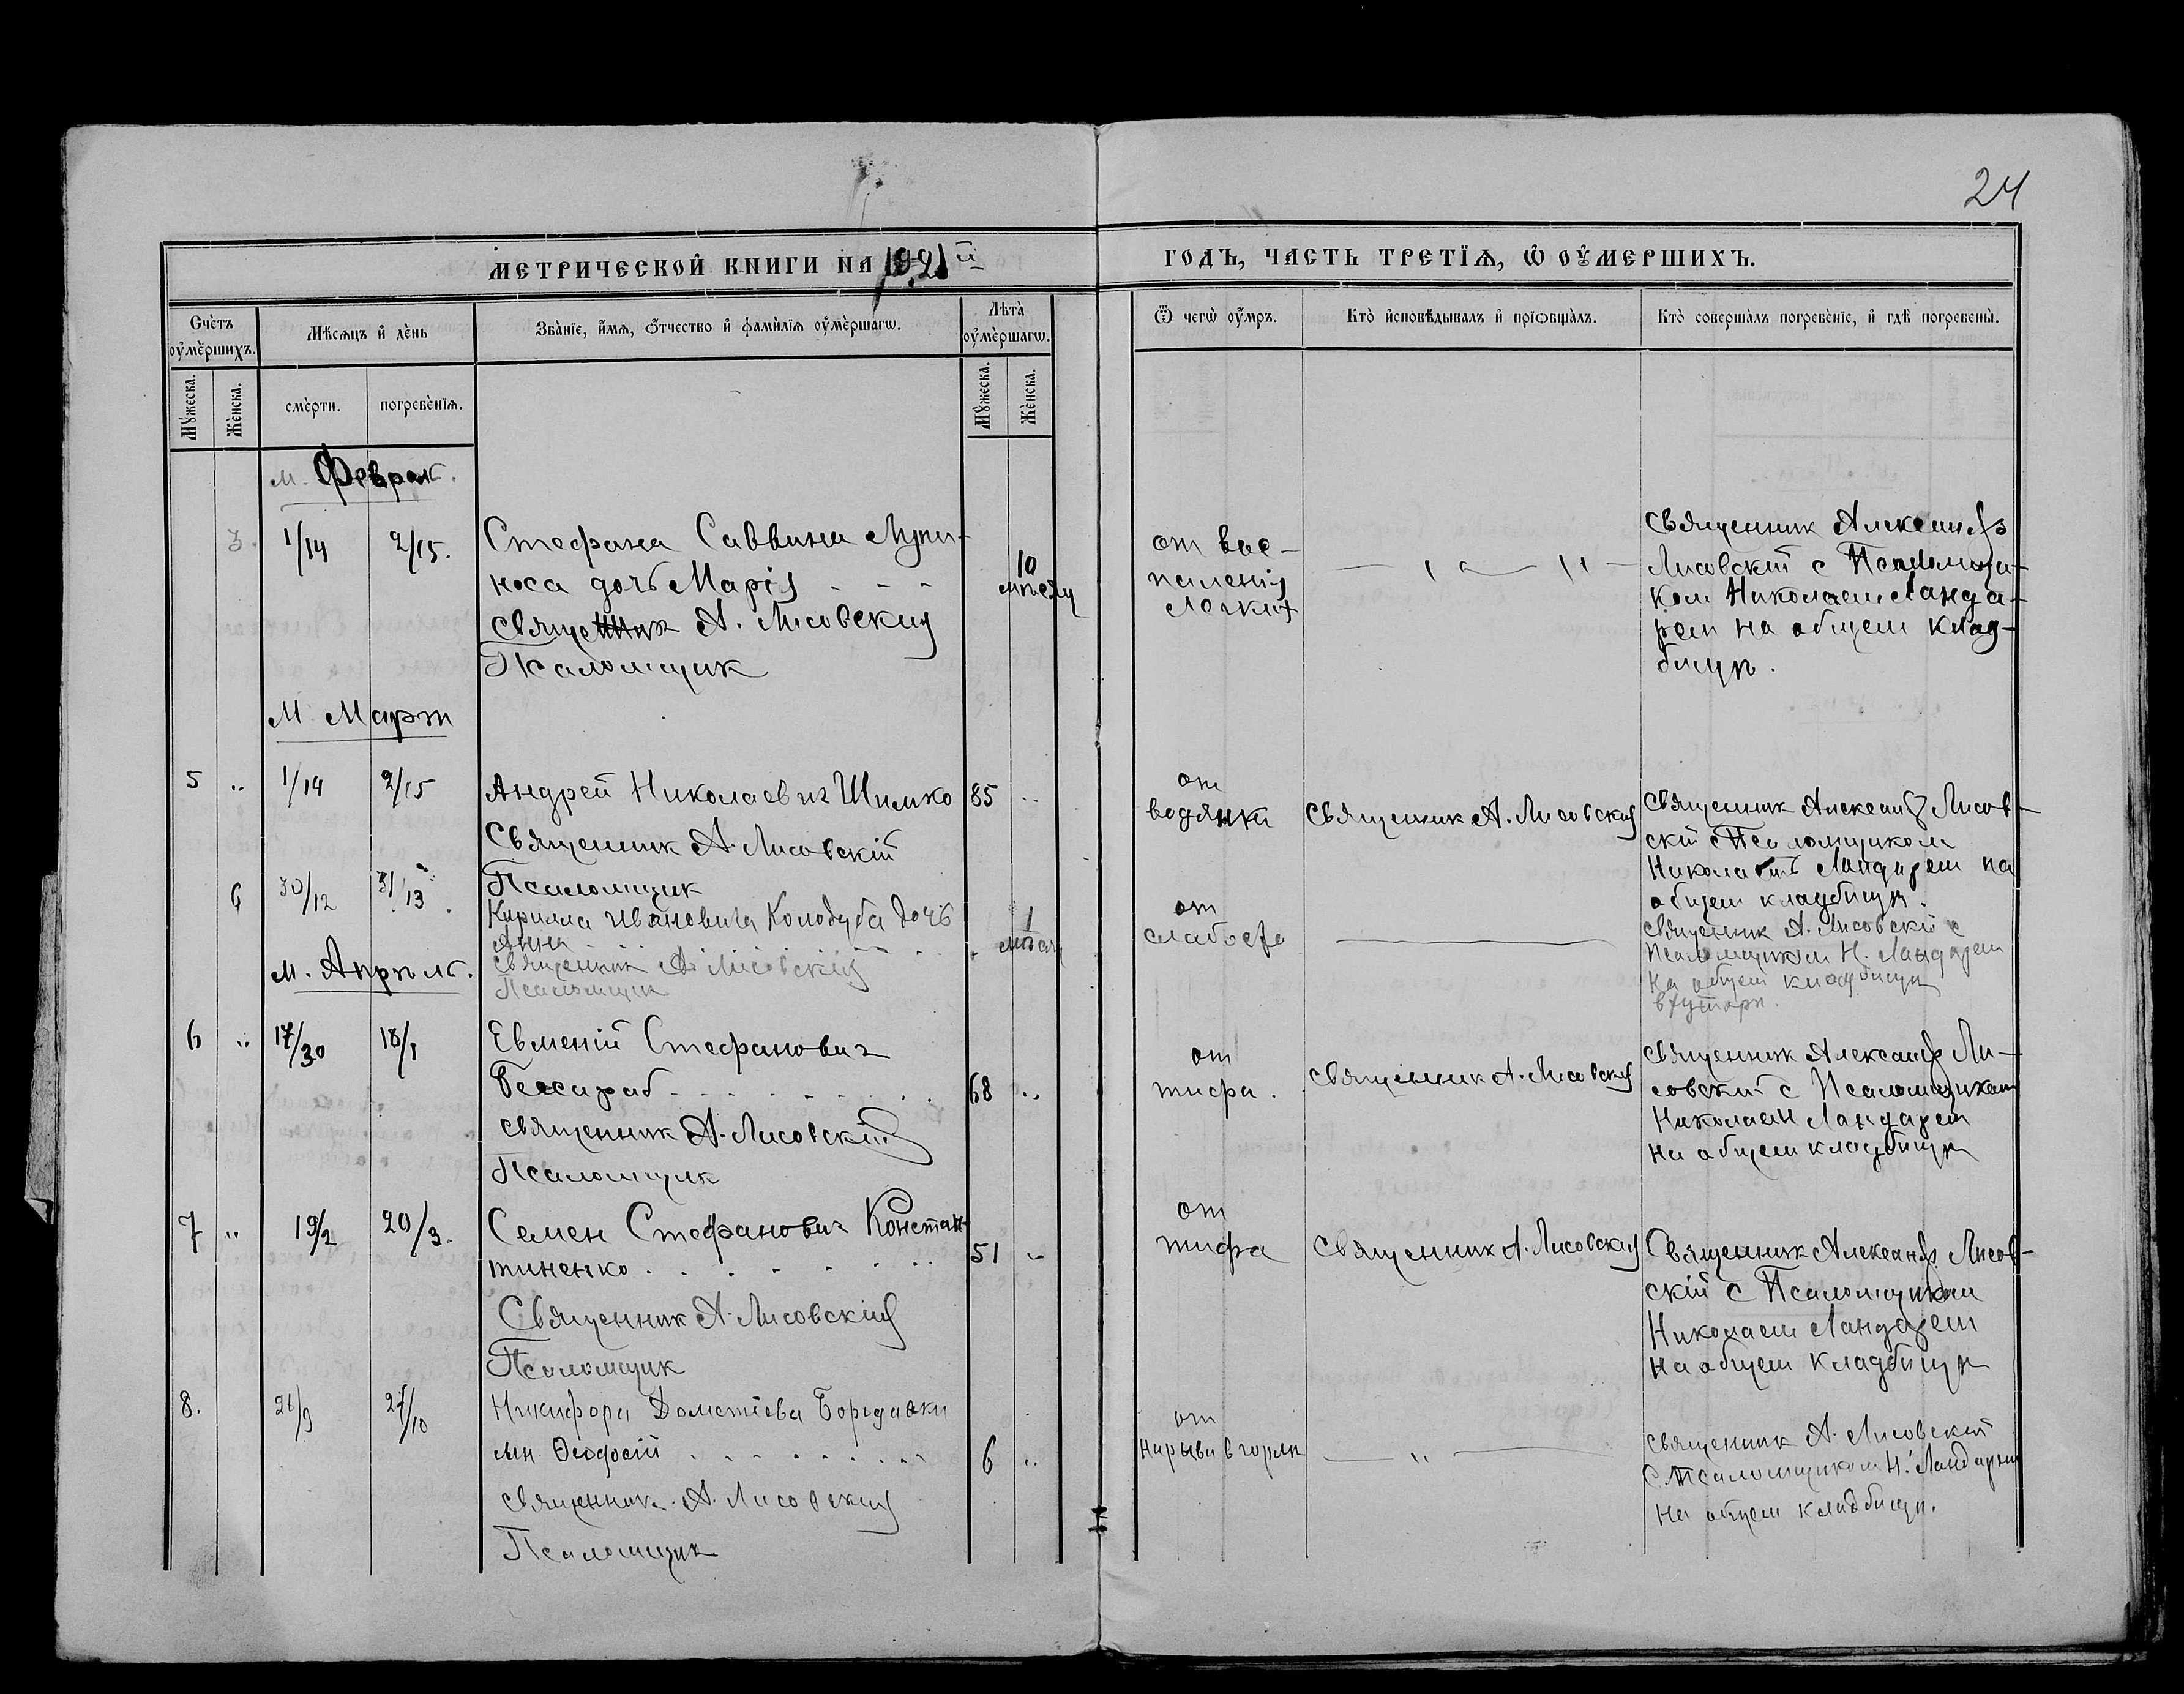 24
МЕТРИЧЕСКОЙ КНИГИ НА 1921 й
ГОДЪ, ЧАСТЬ ТРЕТІЯ, Ѡ ОУМЕРШИХЪ.
Счетъ оумершихъ.
Мѣсяцъ и день
Званіе, имя, отчество и фамилія оумершагѡ.
Лѣта оумершагѡ.
Ѿ чегѡ оумръ.
Кто исповѣдывалъ и пріобщалъ.
Кто совершалъ погребеніе, и гдѣ погребены.
Мужеска.
Женска.
смерти.
погребенія.
Мужеска.
Женска.
м. Феврал.
3. 1/14 2/15. Стефана Саввина Лупи-
носа дочь Марія - - - 10 месяц
Священник А. Лисовский
Псаломщик
от вос-
паления
легких
Священник Александр
Лисовскій с Псаломщи-
ком Николаем Ланда-
рем на общем клад-
бищѣ.
М Март
5 " 1/14 2/15 Андрей Николаевич Шимко 85 "
Священник А. Лисовскій
Псаломщик
от
водянки
Священник А. Лисовский
Священник Александр Лисов-
скій с Псаломщиком
Николаем Ландарем на
общем кладбищѣ.
6 30/12 31/13 Кирилла Ивановича Колодуба дочь
Анна 1 месяц
Священник А. Лисовский
Псаломщик
от
слабости
Священник А. Лисовскій с
Псаломщиком Н. Ландарем
на общем кладбищѣ
м. Апрѣль.
6 " 17/30 18/1 Евмений Стефанович
Бессараб 68 "
Священник А. Лисовскій
Псаломщик
от
тифа.
Священник А. Лисовский
Священник Александр Ли-
совский с Псаломщиком
Николаем Ландарем
на общем кладбищѣ
7 " 19/2 20/3. Семен Стефанович Констан-
тиненко 51 "
Священник А. Лисовскій
Псаломщик
от
тифа
Священник А. Лисовский
Священник Александр Лисов-
скій с Псаломщиком
Николаем Ландарем
на общем кладбищѣ
8. 26/9 27/10 Никифора Дометіева Бородавки
мл. Ѳеодосій 6 "
Священник А. Лисовский
Псаломщик
от
нарыва в горлѣ
Священник А. Лисовскій
с Псаломщиком Н. Ландарем
на общем кладбищѣ.